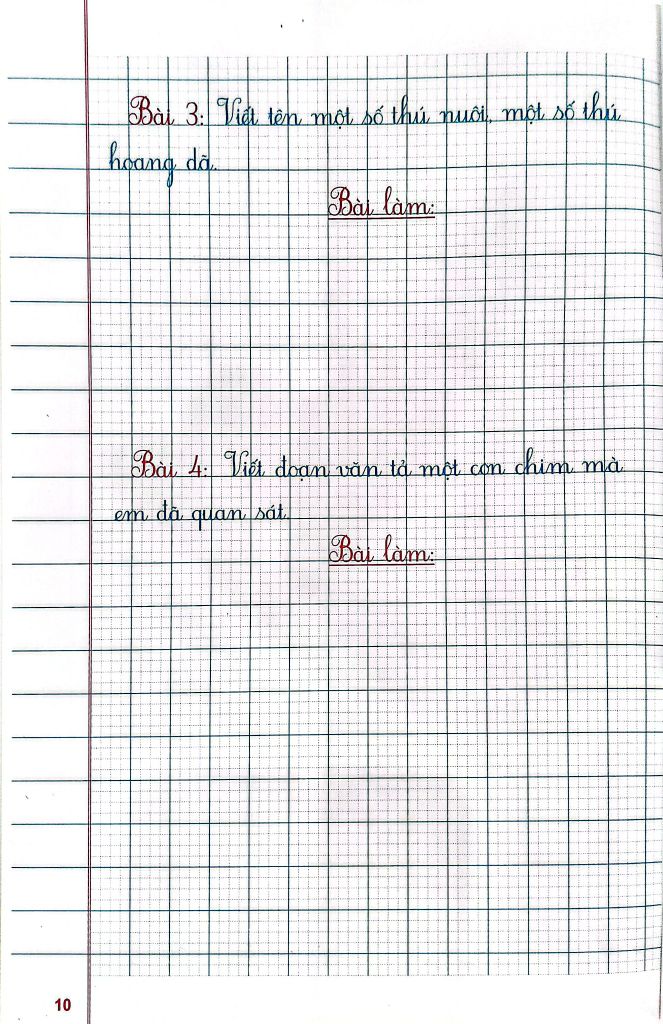 Bài 3: Viết tên một số thú nuôi, một số thú
hoang dã.
Bài làm:
Bài 4: Viết đoạn văn tả một con chim mà
em đã quan sát.
Bài làm:
10